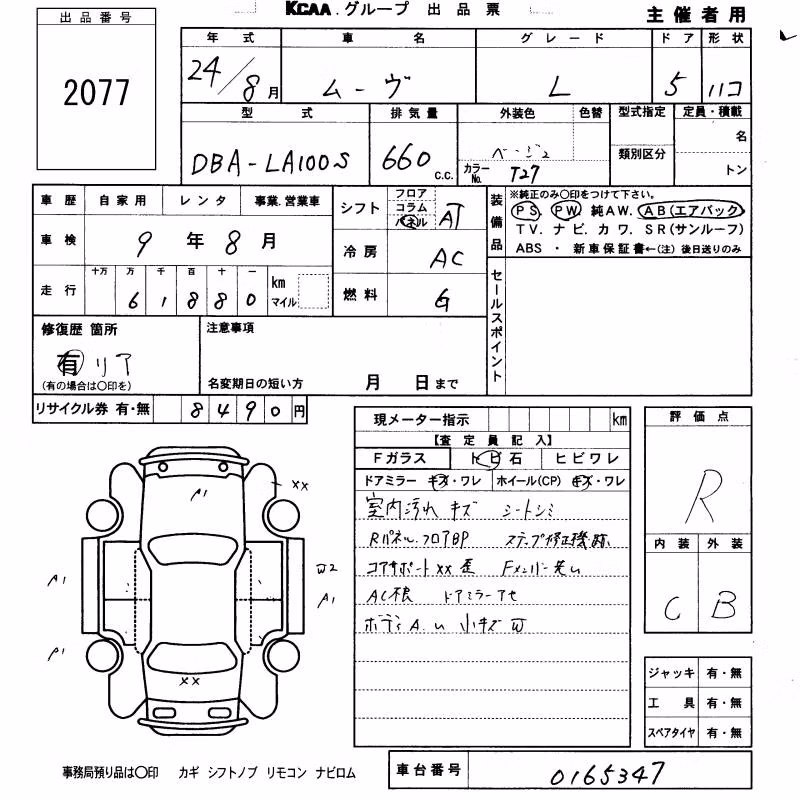 KCAA.グループ 出品票
主催者用
出品番号
2077
年式 車名 グレード ドア 形状
24/8月 ムーヴ L 5 ハコ
型式 排気量 外装色 色替 型式指定 定員・積載
DBA-LA100S 660 C.C. ベージュ 類別区分 名
カラーNo. T27 トン
車歴 自家用 レンタ 事業.営業車
シフト フロア コラム パネル AT
装備品 ※純正のみ〇印をつけて下さい。
PS PW 純AW. AB(エアバック)
TV. ナビ. カワ. SR(サンルーフ)
ABS ・ 新車保証書←(注) 後日送りのみ
車検 9年8月
冷房 AC
走行 十万 万 千 百 十 一 km マイル
61880
燃料 G
セールスポイント
修復歴 箇所 注意事項
有 リア
(有の場合は〇印を) 名変期日の短い方 月 日まで
リサイクル券 有・無 8490円
現メーター指示 km
評価点
【査定員記入】
Fガラス トビ石 ヒビワレ
ドアミラー キズ・ワレ ホイール(CP) キズ・ワレ
R
室内汚れ キズ シートシミ
Rパネル.フロアBP ステップ修正機跡
内装 外装
コアサポートXX歪
C B
AC根 ドアミラーアセ
ボディA.U 小キズW
A1 XX
A1 W2
A1
A1
XX
ジャッキ 有・無
工具 有・無
スペアタイヤ 有・無
事務局預り品は〇印 カギ シフトノブ リモコン ナビロム
車台番号 0165347